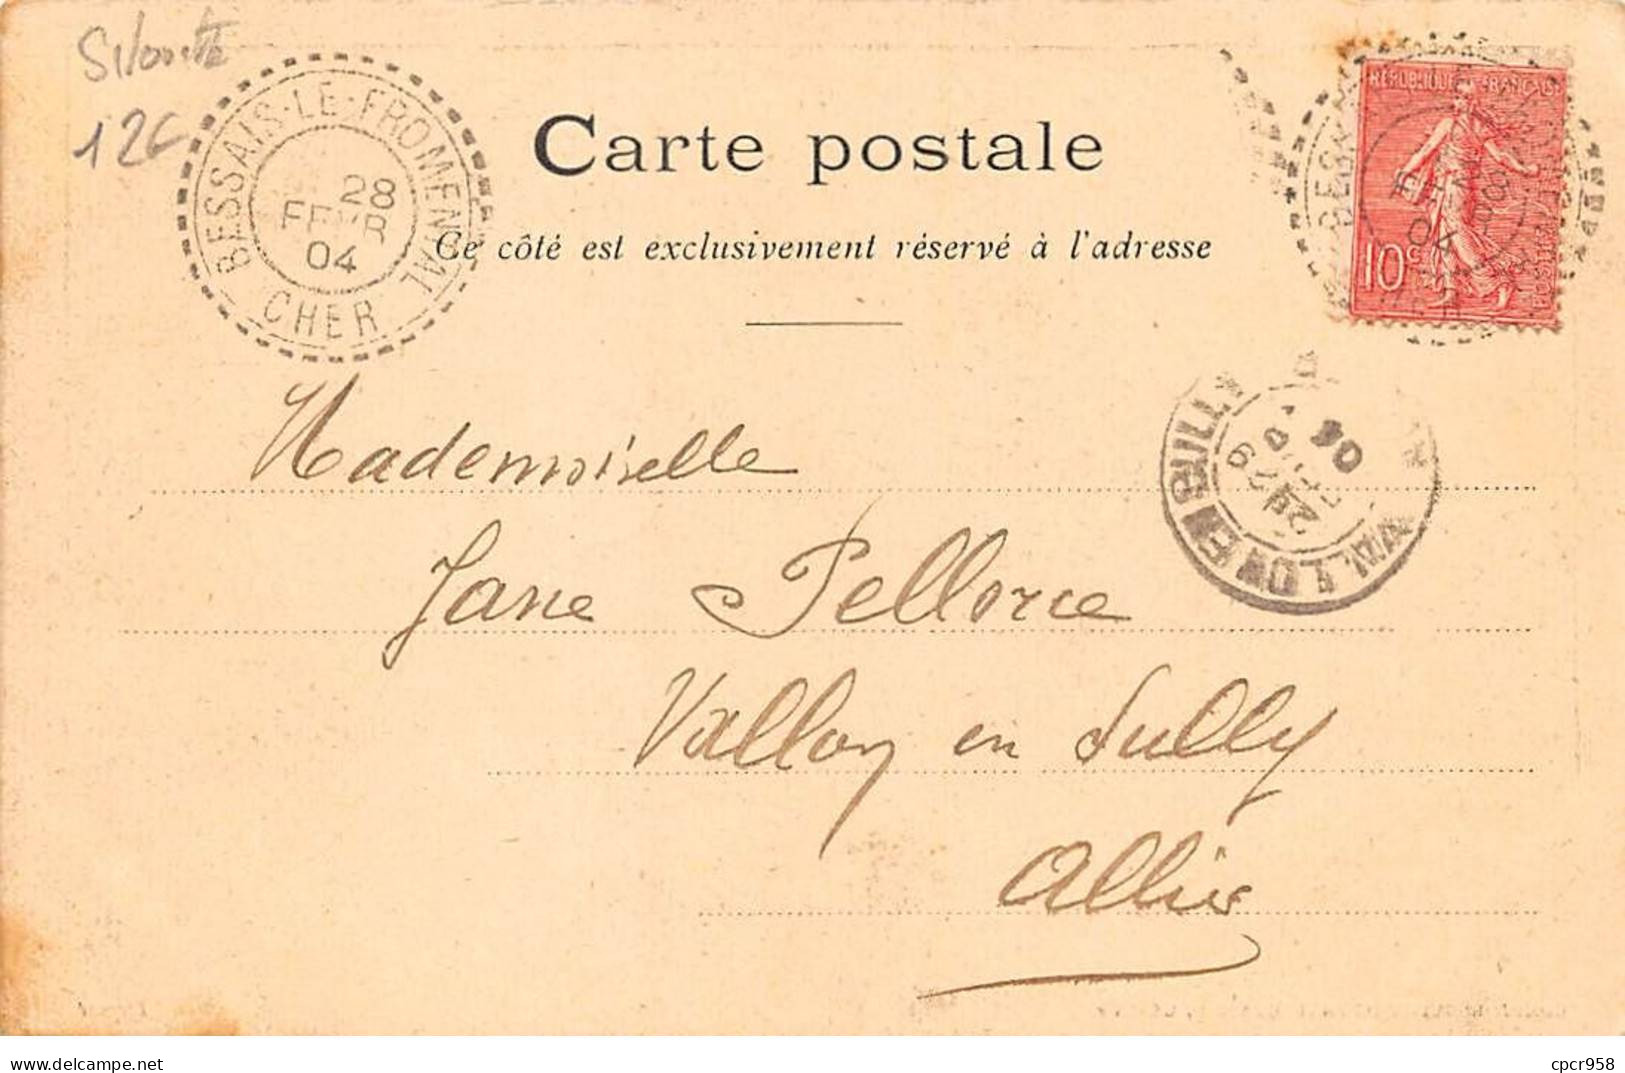 Silouette
12€
BESSAIS-LE-FROMENTAL
28
FEVR
04
CHER
Carte postale
Ce côté est exclusivement réservé à l'adresse
RÉPUBLIQUE FRANÇAISE
10c
Mademoiselle
Jane Pellorce
Vallon en Sully
Allier
04
VALLON EN SULLY
www.delcampe.net
cpcr958